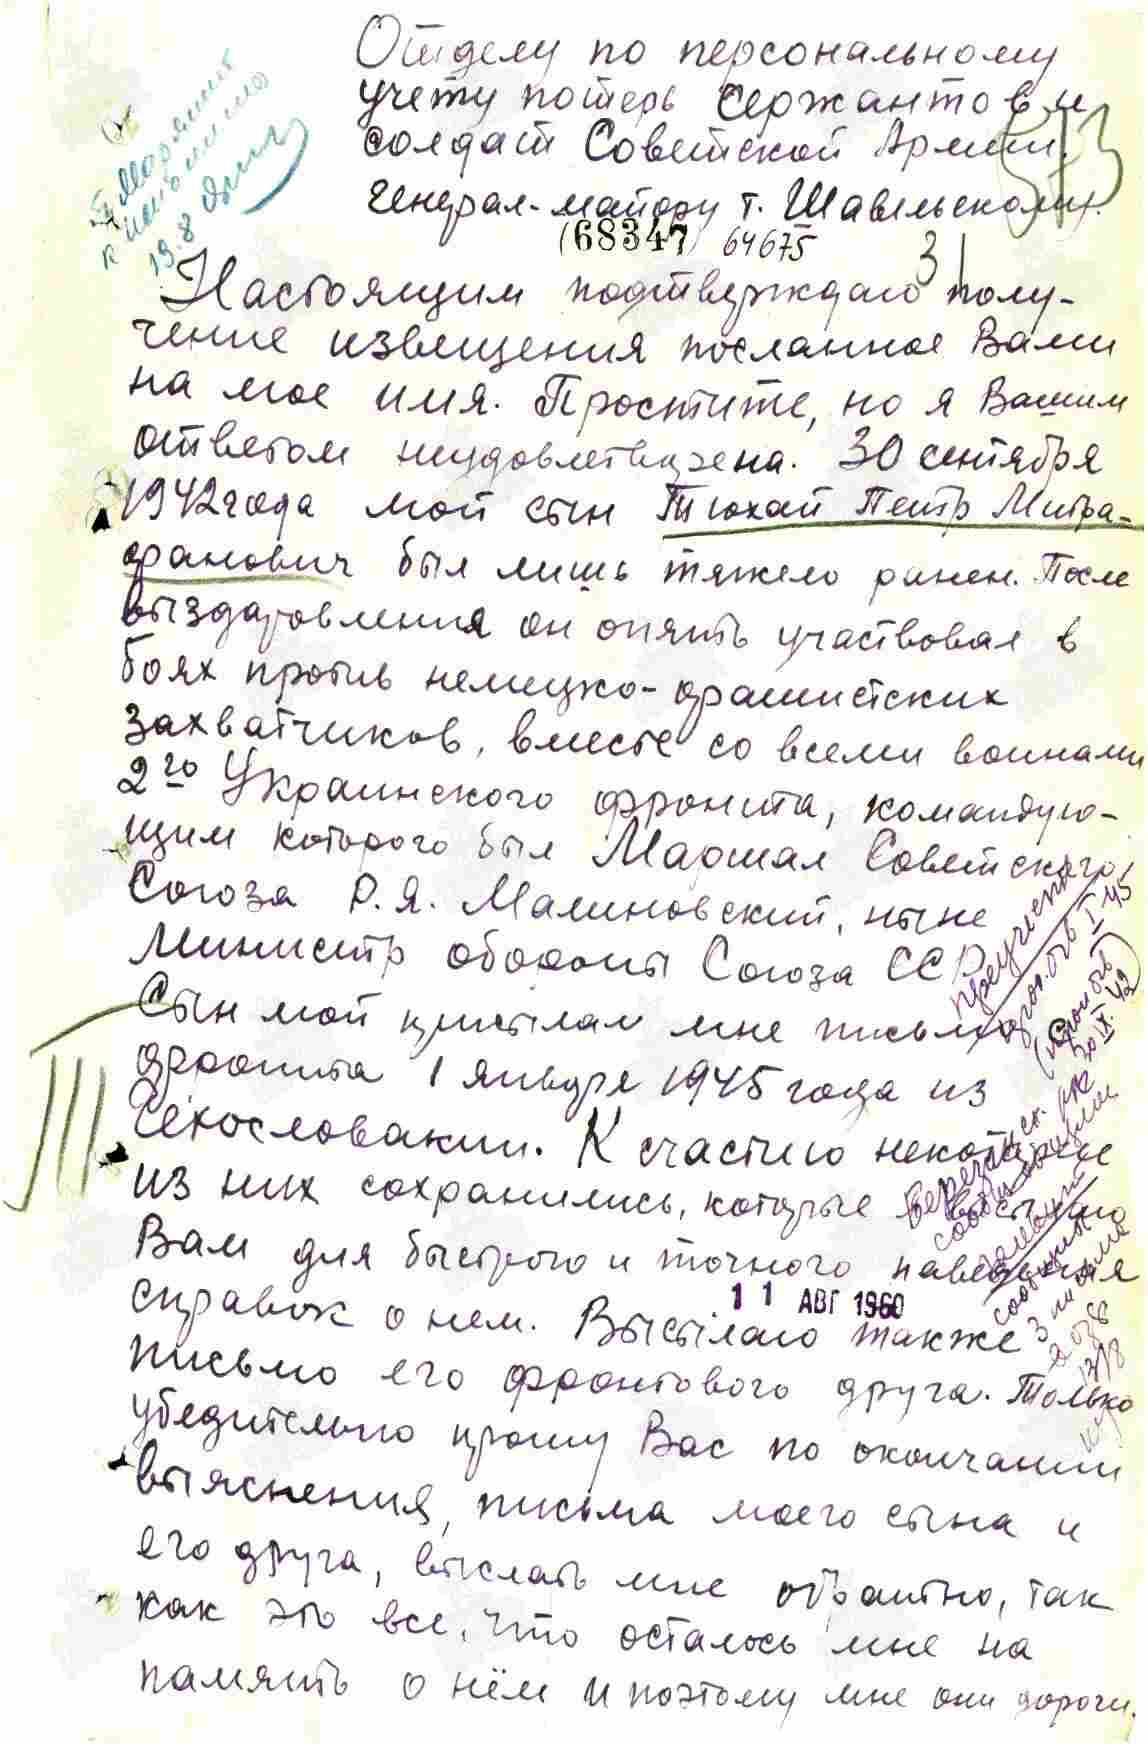 Отделу по персональному
учету потерь сержантов и
солдат Советской Армии.
Генерал-майору т. Шавельскому.
(68347) 64675
19.8
31
Настоящим подтверждаю полу-
чение извещения посланное Вами
на мое имя. Простите, но я Вашим
ответом неудовлетворена. 30 сентября
1942 года мой сын Тюхай Петр Митро-
фанович был лишь тяжело ранен. После
выздаровления он опять участвовал в
боях против немецко-фашистских
захватчиков, вместе со всеми воинами
2го Украинского фронта, командую-
щим которого был Маршал Советского
Союза Р.Я. Малиновский, ныне
Министр обороны Союза ССР
Сын мой присылал мне письма
фронта 1 января 1945 года из
Чехословакии. К счастию некоторые
из них сохранились, которые высылаю
Вам для быстрого и точного наведения
справок о нем. Высылаю также
11 АВГ 1960
письмо его фронтового друга. Только
убедительно прошу Вас по окончании
выяснения, письма моего сына и
его друга, выслать мне обратно, так
как это все, что осталось мне на
память о нём и поэтому мне они дороги.
III